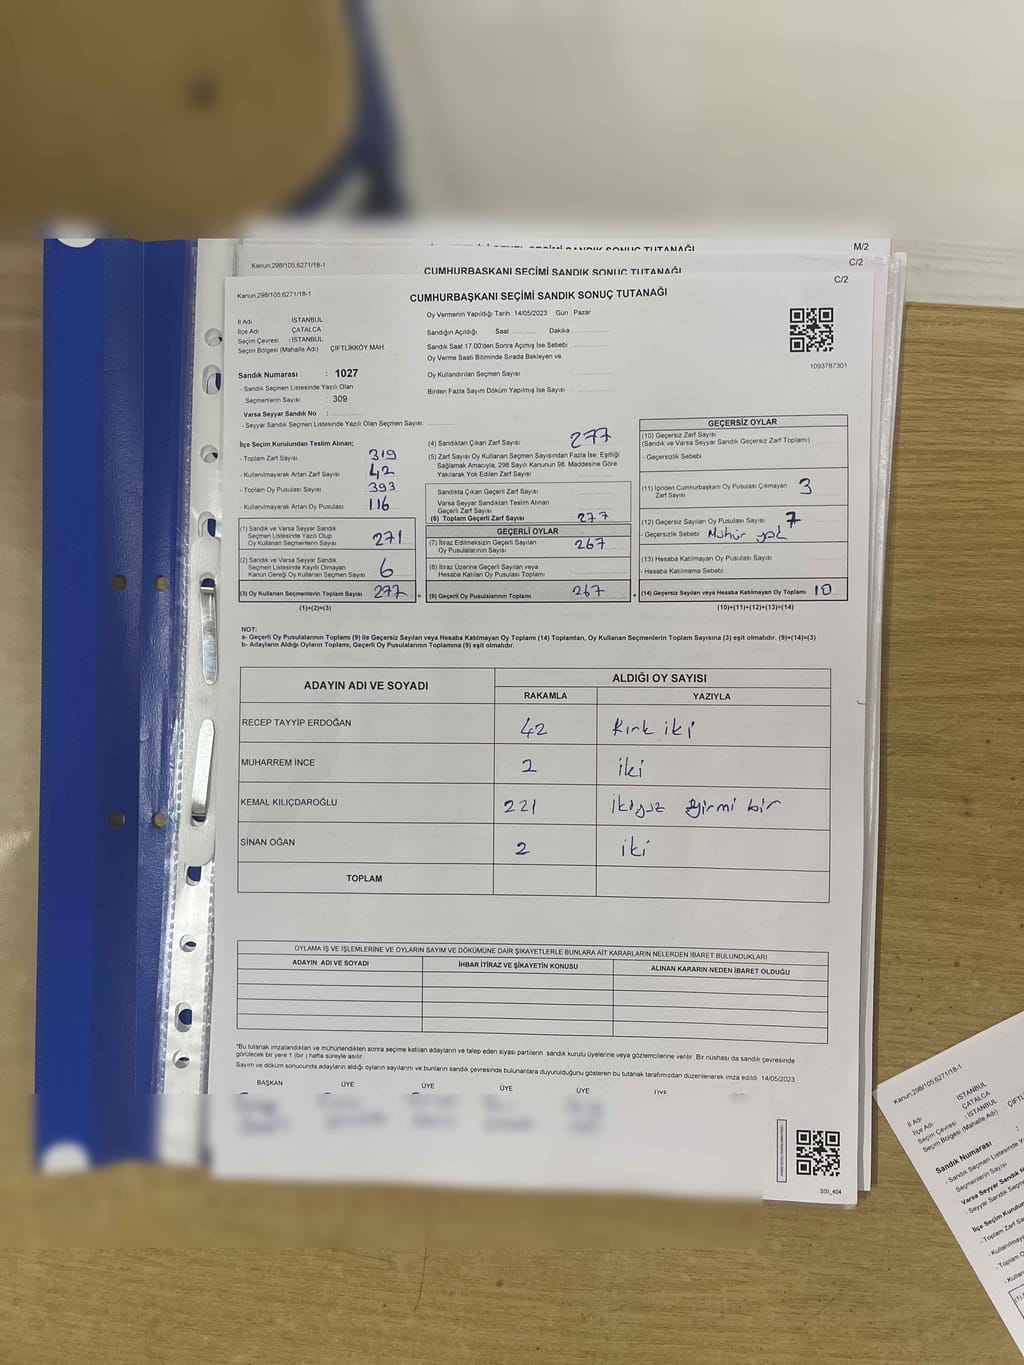 M/2
C/2
Kanun,298/105,6271/18-1
CUMHURBAŞKANI SEÇİMİ SANDIK SONUÇ TUTANAĞI
C/2
Kanun,298/105,6271/18-1
CUMHURBAŞKANI SEÇİMİ SANDIK SONUÇ TUTANAĞI
İl Adı : İSTANBUL
İlçe Adı ÇATALCA
Seçim Çevresi : İSTANBUL
Seçim Bölgesi (Mahalle Adı) ÇİFTLİKKÖY MAH.
Oy Vermenin Yapıldığı Tarih : 14/05/2023 Gün : Pazar
Sandığın Açıldığı Saat Dakika :
Sandık Saat 17.00'den Sonra Açımış İse Sebebi
Oy Verme Saati Bitiminde Sırada Bekleyen ve
Oy Kullandırılan Seçmen Sayısı
Birden Fazla Sayım Döküm Yapılmış İse Sayısı
1093787301
Sandık Numarası : 1027
- Sandık Seçmen Listesinde Yazılı Olan
Seçmenlerin Sayısı : 309
Varsa Seyyar Sandık No :
- Seyyar Sandık Seçmen Listesinde Yazılı Olan Seçmen Sayısı:
İlçe Seçim Kurulundan Teslim Alınan;
- Toplam Zarf Sayısı 319
- Kullanılmayarak Artan Zarf Sayısı 42
- Toplam Oy Pusulası Sayısı 393
- Kullanılmayarak Artan Oy Pusulası 116
(1) Sandık ve Varsa Seyyar Sandık
Seçmen Listesinde Yazılı Olup
Oy Kullanan Seçmenlerin Sayısı 271
(2) Sandık ve Varsa Seyyar Sandık
Seçmen Listesinde Kayıtlı Olmayan
Kanun Gereği Oy Kullanan Seçmen Sayısı 6
(3) Oy Kullanan Seçmenlerin Toplam Sayısı 277
(1)+(2)=(3)
(4) Sandıktan Çıkan Zarf Sayısı 277
(5) Zarf Sayısı Oy Kullanan Seçmen Sayısından Fazla İse, Eşitliği
Sağlamak Amacıyla, 298 Sayılı Kanunun 98. Maddesine Göre
Yakılarak Yok Edilen Zarf Sayısı
Sandıkta Çıkan Geçerli Zarf Sayısı
Varsa Seyyar Sandıktan Teslim Alınan
Geçerli Zarf Sayısı
(6) Toplam Geçerli Zarf Sayısı 277
GEÇERLİ OYLAR
(7) İtiraz Edilmeksizin Geçerli Sayılan
Oy Pusulalarının Sayısı 267
(8) İtiraz Üzerine Geçerli Sayılan veya
Hesaba Katılan Oy Pusulası Toplamı
(9) Geçerli Oy Pusulalarının Toplamı 267
GEÇERSİZ OYLAR
(10) Geçersiz Zarf Sayısı
(Sandık ve Varsa Seyyar Sandık Geçersiz Zarf Toplamı)
- Geçersizlik Sebebi
(11) İçinden Cumhurbaşkanı Oy Pusulası Çıkmayan
Zarf Sayısı 3
(12) Geçersiz Sayılan Oy Pusulası Sayısı 7
- Geçersizlik Sebebi Mühür yok
(13) Hesaba Katılmayan Oy Pusulası Sayısı
- Hesaba Katılmama Sebebi
(14) Geçersiz Sayılan veya Hesaba Katılmayan Oy Toplamı 10
(10)+(11)+(12)+(13)=(14)
NOT:
a- Geçerli Oy Pusulalarının Toplamı (9) ile Geçersiz Sayılan veya Hesaba Katılmayan Oy Toplamı (14) Toplamları, Oy Kullanan Seçmenlerin Toplam Sayısına (3) eşit olmalıdır. (9)+(14)=(3)
b- Adayların Aldığı Oyların Toplamı, Geçerli Oy Pusulalarının Toplamına (9) eşit olmalıdır.
ADAYIN ADI VE SOYADI
ALDIĞI OY SAYISI
RAKAMLA YAZIYLA
RECEP TAYYİP ERDOĞAN 42 Kırk iki
MUHARREM İNCE 2 iki
KEMAL KILIÇDAROĞLU 221 ikiyüz yirmi bir
SİNAN OĞAN 2 iki
TOPLAM
OYLAMA İŞ VE İŞLEMLERİNE VE OYLARIN SAYIM VE DÖKÜMÜNE DAİR ŞİKAYETLERLE BUNLARA AİT KARARLARIN NELERDEN İBARET BULUNDUKLARI
ADAYIN ADI VE SOYADI İHBAR İTİRAZ VE ŞİKAYETİN KONUSU ALINAN KARARIN NEDEN İBARET OLDUĞU
"Bu tutanak imzalandıktan ve mühürlendikten sonra seçime katılan adayların ve talep eden siyasi partilerin sandık kurulu üyelerine veya gözlemcilerine verilir. Bir nüshası da sandık çevresinde
görülecek bir yere 1 (bir ) hafta süreyle asılır.
Sayım ve döküm sonucunda adayların aldığı oyların sayılarını ve bunların sandık çevresinde bulunanlara duyurulduğunu gösteren bu tutanak tarafımızdan düzenlenerek imza edildi. 14/05/2023
BAŞKAN ÜYE ÜYE ÜYE ÜYE ÜYE
SSİ_404
Kanun,298/105,6271/18-1
İl Adı İSTANBUL
İlçe Adı ÇATALCA
Seçim Çevresi : İSTANBUL
Seçim Bölgesi (Mahalle Adı)
Sandık Numarası
- Sandık Seçmen Listesinde
Seçmenlerin Sayısı
Varsa Seyyar Sandık
- Seyyar Sandık
- Toplam Zarf